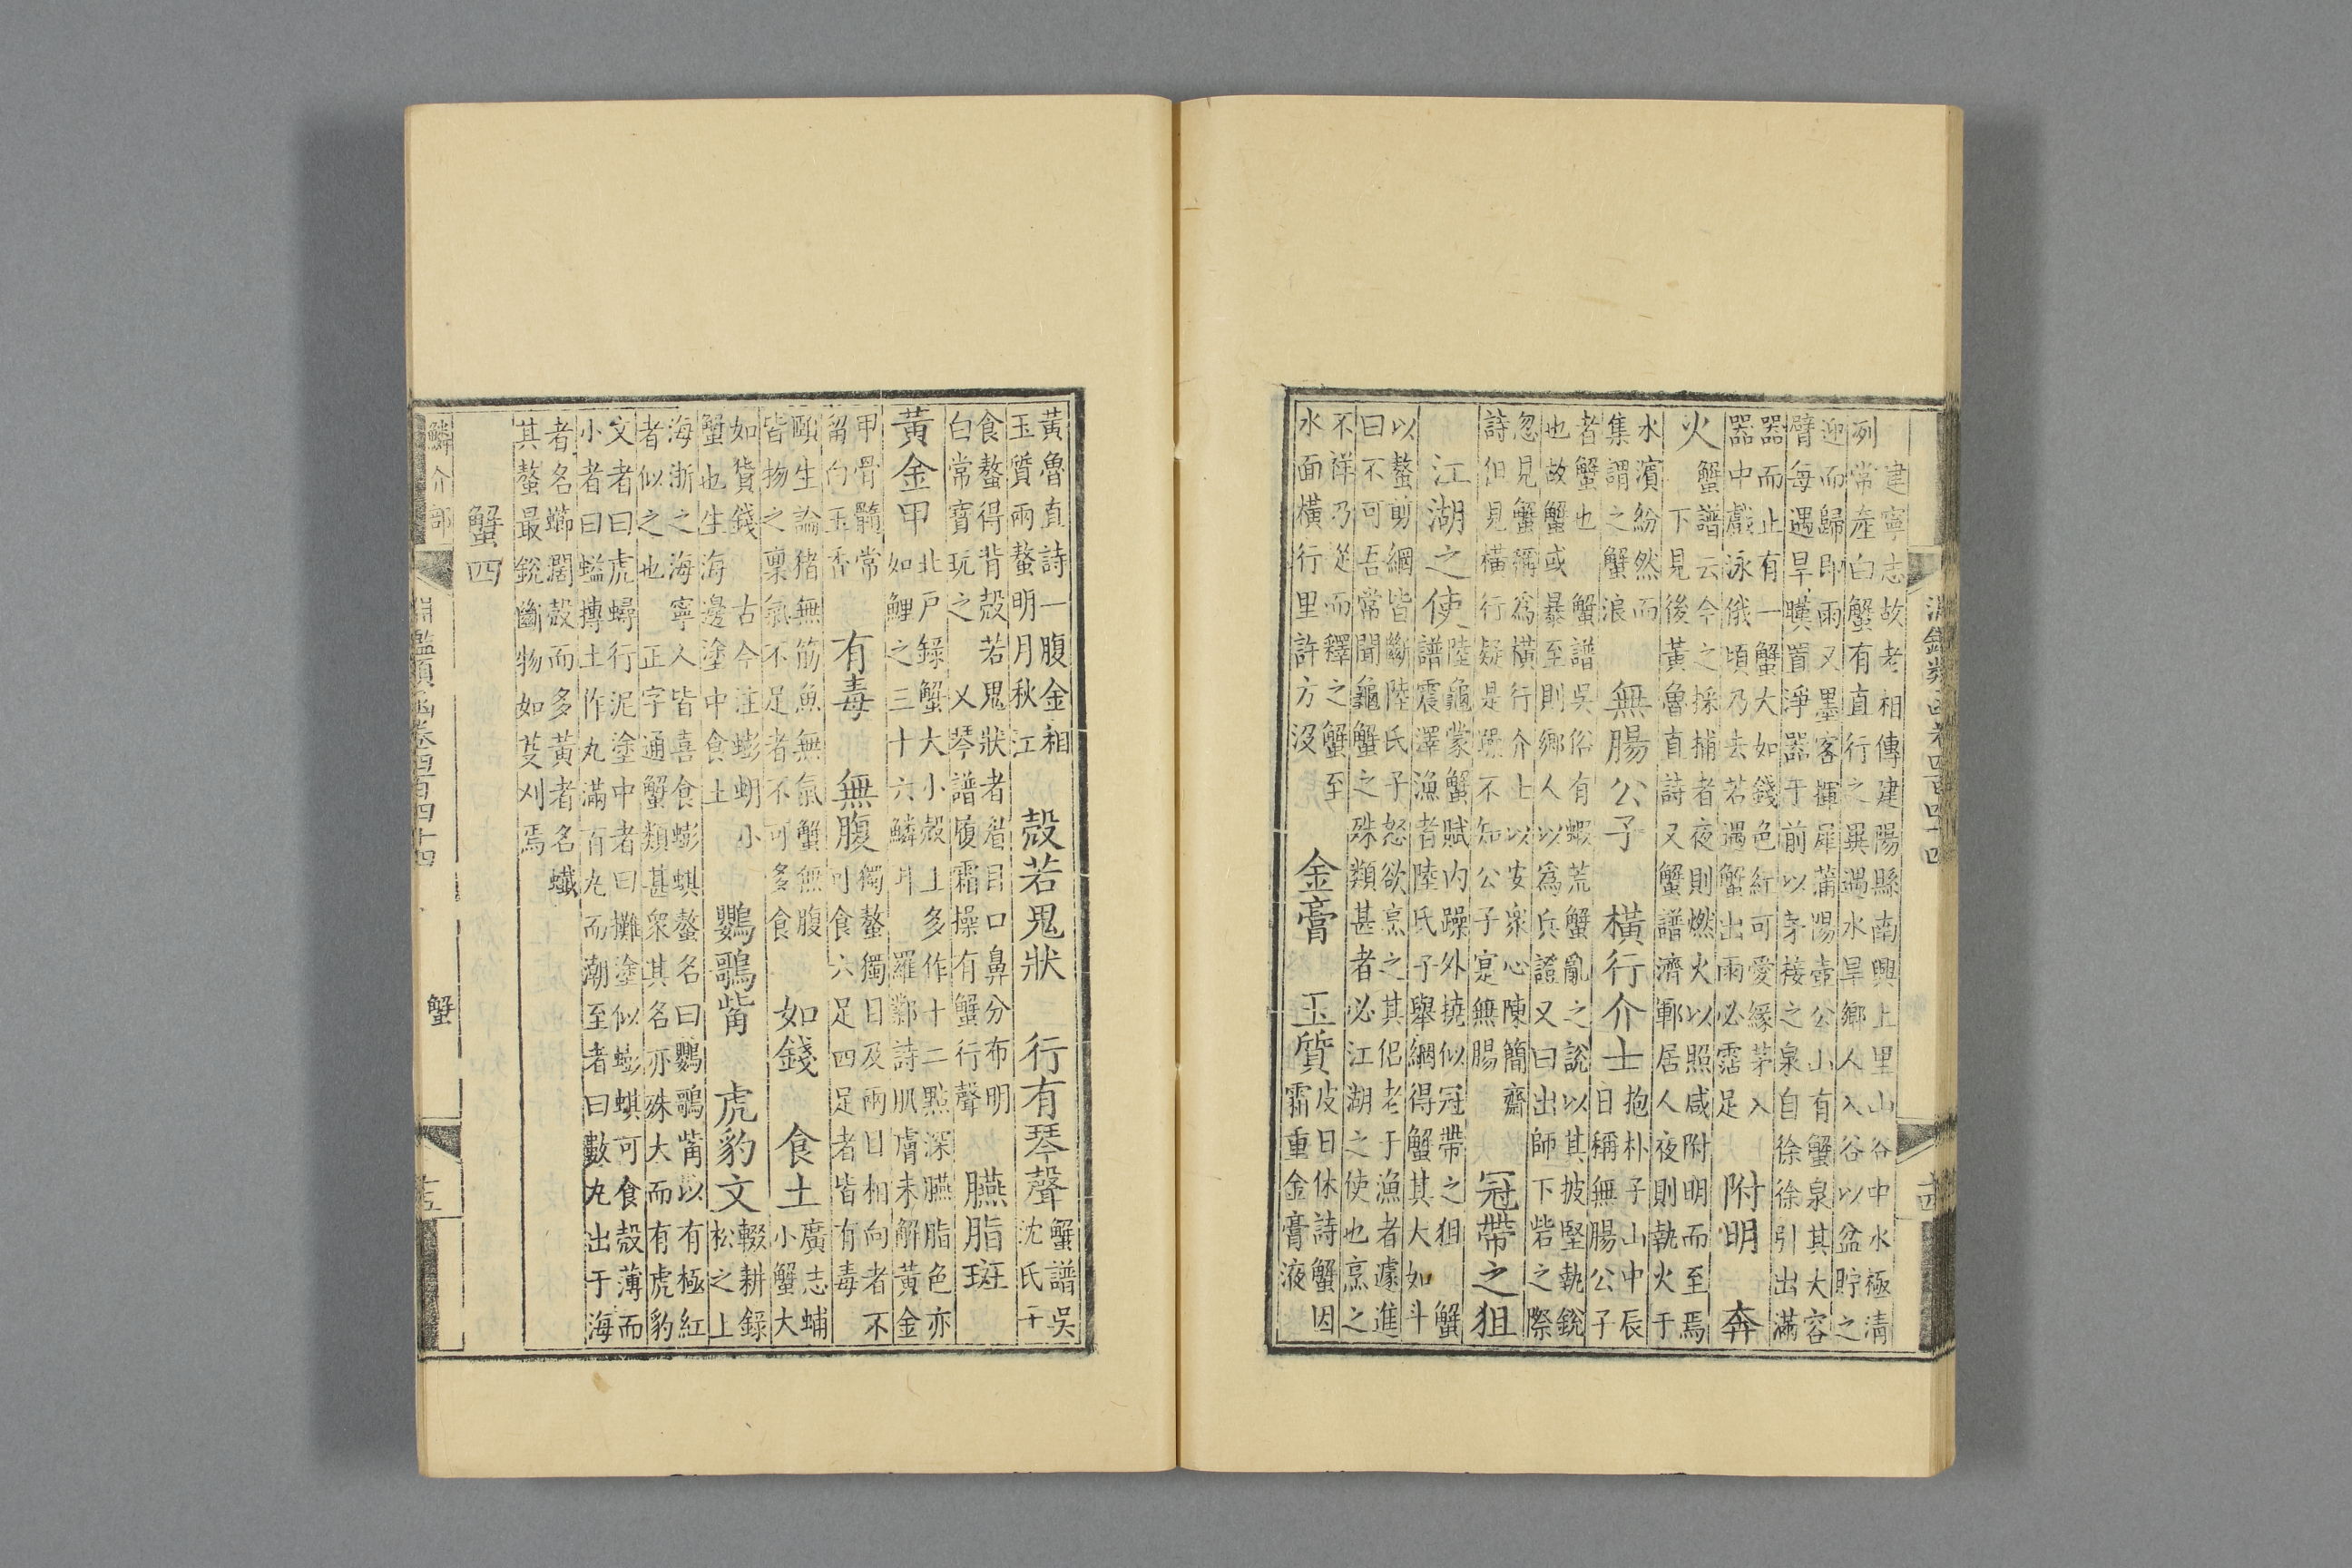 淵鑑類函卷四百四十四
十四
建寧志故老相傳建陽縣南興上里山谷中水極清
冽常產白蟹有直行之異遇水旱鄉人入谷以盆貯之
迎而歸即雨又墨客揮犀蒲陽壺公山有蟹泉其大容
臂每遇旱暵置淨器于前以茅接之泉自徐徐引出滿
器而止有一蟹大如錢色紅可愛緣茅入
器中戲泳俄頃乃去若遇蟹出雨必霑足
附明 奔
火
蟹譜云今之採捕者夜則燃火以照咸附明而至焉
下見後黃魯直詩又蟹譜濟鄆居人夜則執火于
水濱紛然而
集謂之蟹浪
無腸公子 橫行介士
抱朴子山中辰
日稱無腸公子
者蟹也 蟹譜吳俗有蝦荒蟹亂之說以其披堅執銳
也故蟹或暴至則鄉人以為兵證又曰出師下砦之際
忽見蟹稱為橫行介士以安衆心陳簡齋
詩但見橫行疑是躁不知公子寔無腸
冠帶之狙
江湖之使
陸龜蒙蟹賦內躁外撓似冠帶之狙 蟹
譜震澤漁者陸氏子舉網得蟹其大如斗
以螯剪網皆斷陸氏子怒欲烹之其侶老于漁者遽進
曰不可吾常聞龜蟹之殊類甚者必江湖之使也烹之
不祥乃從而釋之蟹至
水面橫行里許方沒
金膏 玉質
皮日休詩蟹因
霜重金膏液
黃魯直詩一腹金相
玉質兩螯明月秋江
殼若鬼狀 行有琴聲
蟹譜吳
沈氏子
食螯得背殼若鬼狀者眉目口鼻分布明
白常寶玩之 又琴譜履霜操有蟹行聲
臙脂斑
黃金甲
北戶錄蟹大小殼上多作十二點深臙脂色亦
如鯉之三十六鱗耳 羅鄴詩肌膚未解黃金
甲骨髓常
留白玉香
有毒 無腹
獨螯獨目及兩目相向者不
可食六足四足者皆有毒
頤生論豬無筋魚無氣蟹無腹
皆物之稟氣不足者不可多食
如錢 食土
廣志蜅
小蟹大
如貨錢 古今注蟛蚏小
蟹也生海邊塗中食土
鸚鵡觜 虎豹文
輟耕錄
松之上
海浙之海寧人皆喜食蟛蜞螯名曰鸚鵡觜以有極紅
者似之也 正字通蟹類甚衆其名亦殊大而有虎豹
文者曰虎蟳行泥塗中者曰攤塗似蟛蜞可食殼薄而
小者曰蜢摶土作丸滿百丸而潮至者曰數丸出于海
者名 闊殼而多黃者名蠘
其螯最銳斷物如芟刈焉
蟹四
鱗介部
淵鑑類函卷四百四十四
蟹
十五